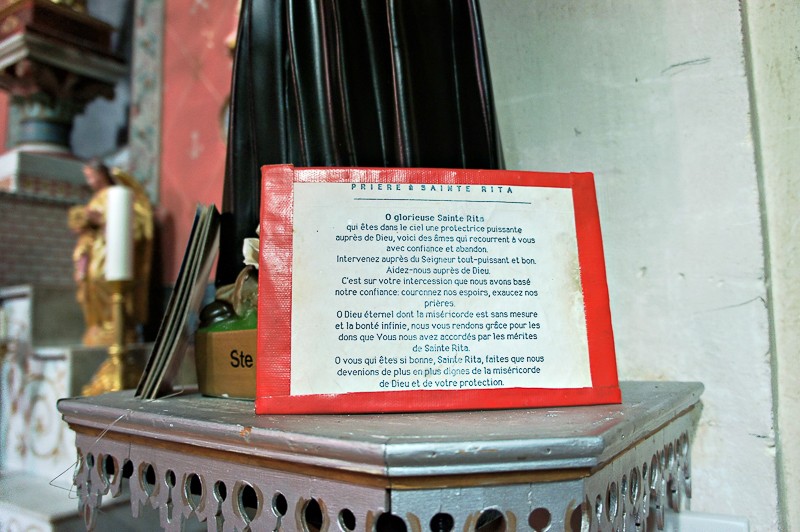 PRIERE à SAINTE RITA
O glorieuse Sainte Rita
qui êtes dans le ciel une protectrice puissante
auprès de Dieu, voici des âmes qui recourrent à vous
avec confiance et abandon.
Intervenez auprès du Seigneur tout-puissant et bon.
Aidez-nous auprès de Dieu.
C'est sur votre intercession que nous avons basé
notre confiance: couronnez nos espoirs, exaucez nos
prières.
O Dieu éternel dont la miséricorde est sans mesure
et la bonté infinie, nous vous rendons grâce pour les
dons que Vous nous avez accordés par les mérites
de Sainte Rita.
O vous qui êtes si bonne, Sainte Rita, faites que nous
devenions de plus en plus dignes de la miséricorde
de Dieu et de votre protection.
Ste